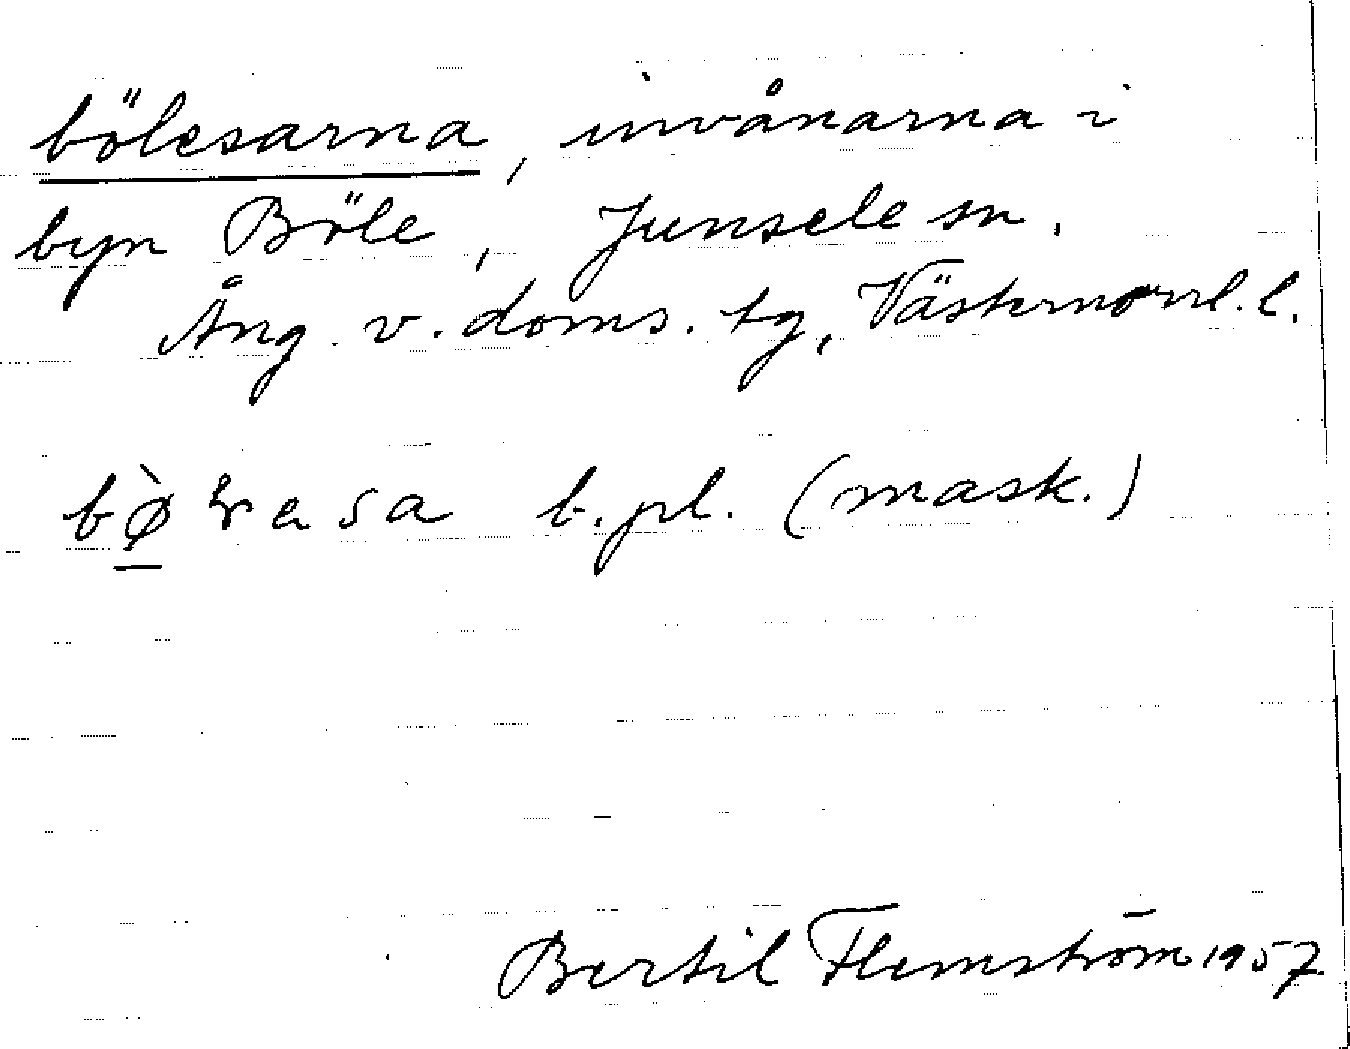 bölesarna, invånarna i
byn Böle, Junsele sn.
Ång. v. doms. tg, Västernorrl. l.
b. pl. (mask.)
Bertil Flemström 1957